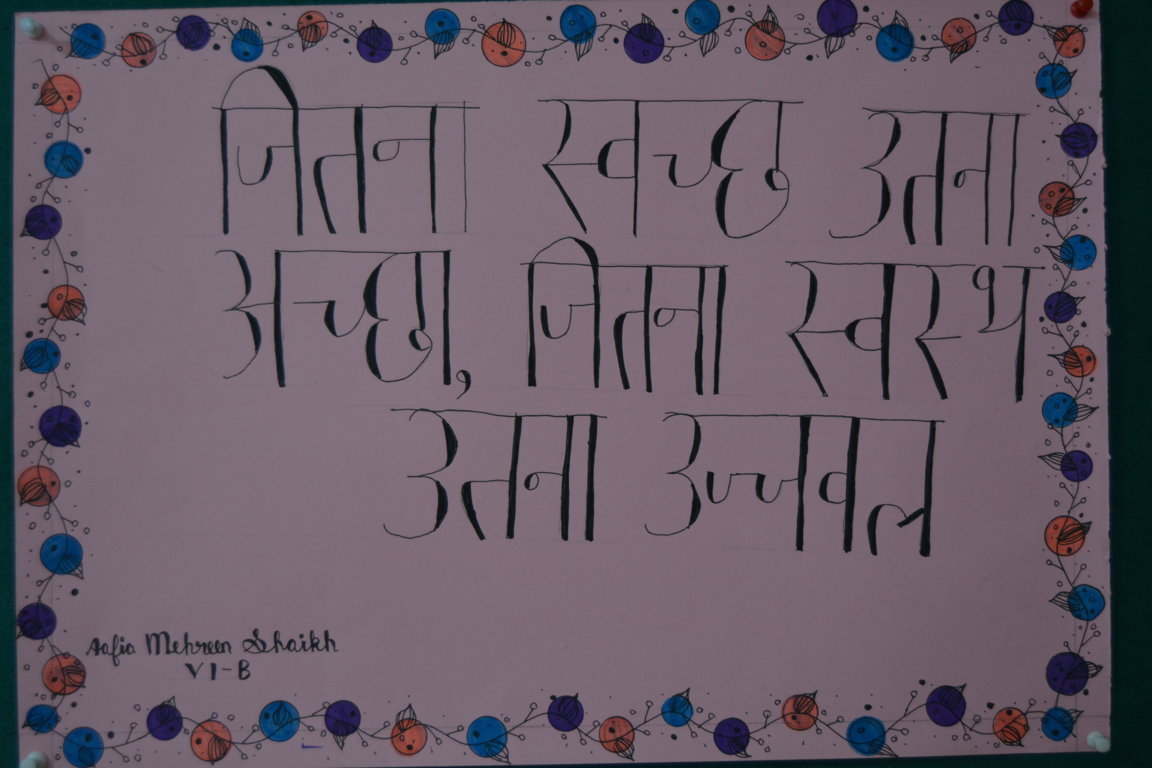 जितना स्वच्छ उतना
अच्छा, जितना स्वस्थ
उतना उज्जवल
Aafia Mehreen Shaikh
VI-B